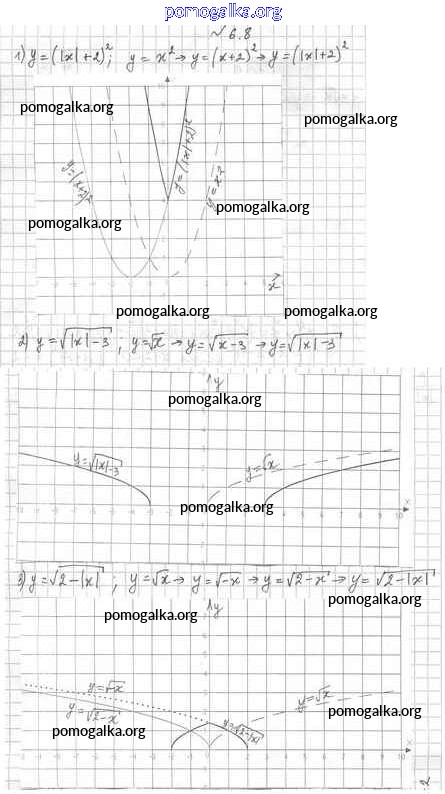 pomogalka.org
№ 6.8
1) y=(|x|+2)²; y=x² → y=(x+2)² → y=(|x|+2)²
pomogalka.org
pomogalka.org
y=(x+2)²
y=(|x|+2)²
y=x²
pomogalka.org
pomogalka.org
x
pomogalka.org
pomogalka.org
2) y=√|x|-3; y=√x → y=√x-3 → y=√|x|-3
y
pomogalka.org
y=√|x|-3
y=√x
pomogalka.org
x
3) y=√2-|x|; y=√x → y=√-x → y=√2-x → y=√2-|x|
pomogalka.org
pomogalka.org
y
y=√-x
y=√x
y=√2-x
y=√2-|x|
pomogalka.org
pomogalka.org
x